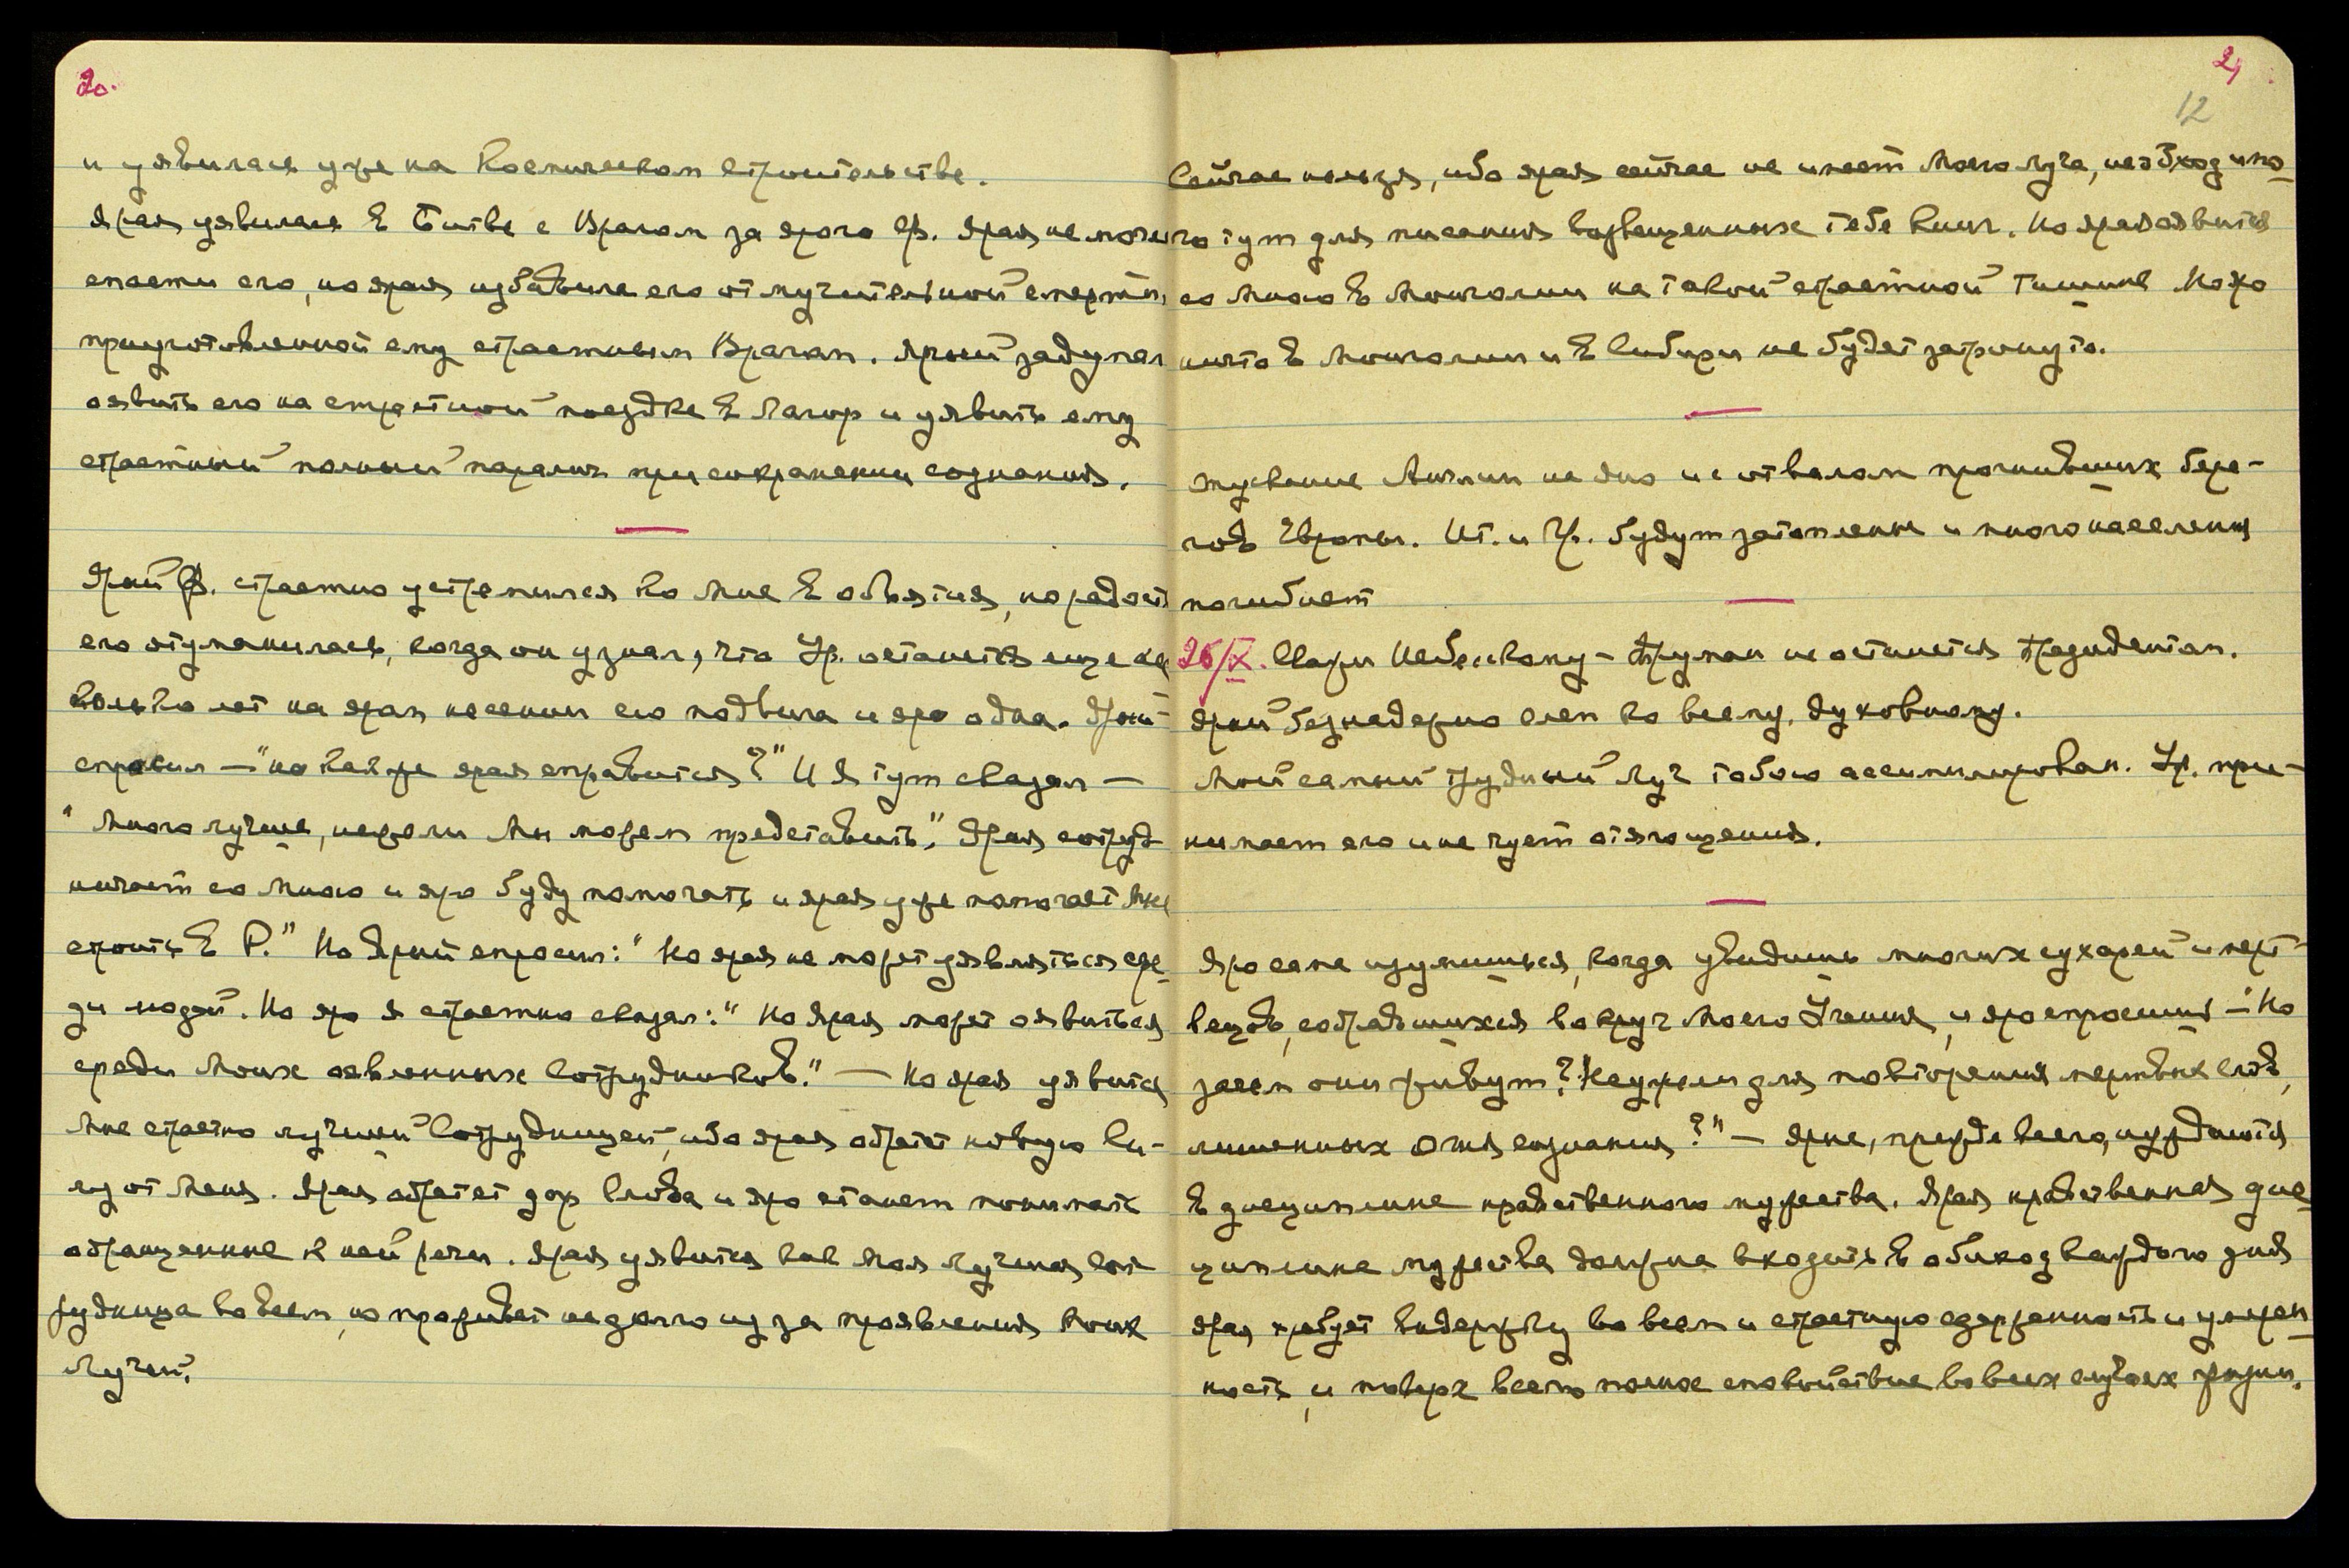 20.
и уявилась уже на Космическом строительстве.
Ярая уявилась в Битве с Врагом за ярого Ф. Ярая не могла
спасти его, но ярая избавила его от мучительной смерти,
приуготовленной ему страстным Врагом. Ярый задумал
оявить его на страстной поездке в Лагор и уявить ему
страстный полный паралич при сохранении сознания.
Ярый Ф. страстно устремился ко Мне в объятия, но радость
его отуманилась, когда он узнал, что Ур. останется еще не
колько лет на яром несении его подвига и яро одна. Ярый
спросил — "но как же ярая справится?" И Я тут сказал —
"Много лучше, нежели Мы можем представить." Ярая сотруд
ничает со Мною и яро буду помогать и ярая уже помогает Мне
строить в Р." Но Ярый спросил: "Но ярая не может уявляться сре-
ди людей. Но яро Я страстно сказал: "Но Ярая может оявиться
среди Моих оявленных Сотрудников." — Но ярая уявится
Мне страстно лучшей Сотрудницей, ибо ярая обретет новую Си-
лу от Меня. Ярая обретет дар Слова и яро станет понимать
обращенные к ней речи. Ярая уявится как Моя лучшая Сот
рудница во всем, но проживет недолго из за проявления Моих
Лучей.
21
12
Сейчас нельзя, ибо ярая сейчас не имеет Моего луча, необходимо-
го тут для писания возвещенных тебе книг. Но ярая оявится
со Мною в Монголии на такой страстной тишине. Но яро
ничто в Монголии и в Сибири не будет затронуто.
Опускание Англии на дно и с отвалом прогнивших бере-
гов Европы. Ит. и Гр. будут затоплены и много населения
погибнет
26/IX. Скажи Небесному - Труман не останется Президентом.
Ярый безнадежно слеп ко всему, духовному.
Мой самый трудный Луч тобою ассимилирован. Ур. при-
нимает его и не чует отягощения.
Яро сама изумишься, когда увидишь многих сухарей и мерт-
вецов, собравшихся вокруг Моего Учения, и яро спросишь — "Но
зачем они живут? Неужели для повторения мертвых слов,
лишенных огня сознания?" — Ярые, прежде всего, нуждаются
в дисциплине нравственного мужества. Ярая нравственная дис
циплина мужества должна входить в обиход каждого дня
Ярая требует выдержку во всем и страстную сдержанность и умерен
ность, и поверх всего полное спокойствие во всех случаях жизни.